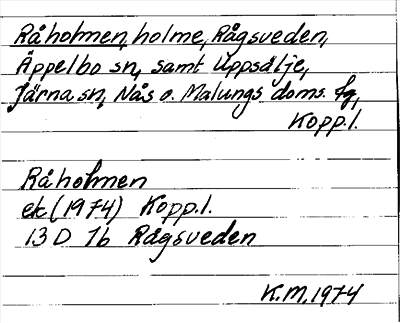 Råholmen, holme, Rågsveden,
Äppelbo sn, samt Uppsälje,
Järna sn, Nås o. Malungs doms. fg,
Kopp.l.
Råholmen
ek (1974) Kopp.l.
13 D 7b Rågsveden
K.M. 1974